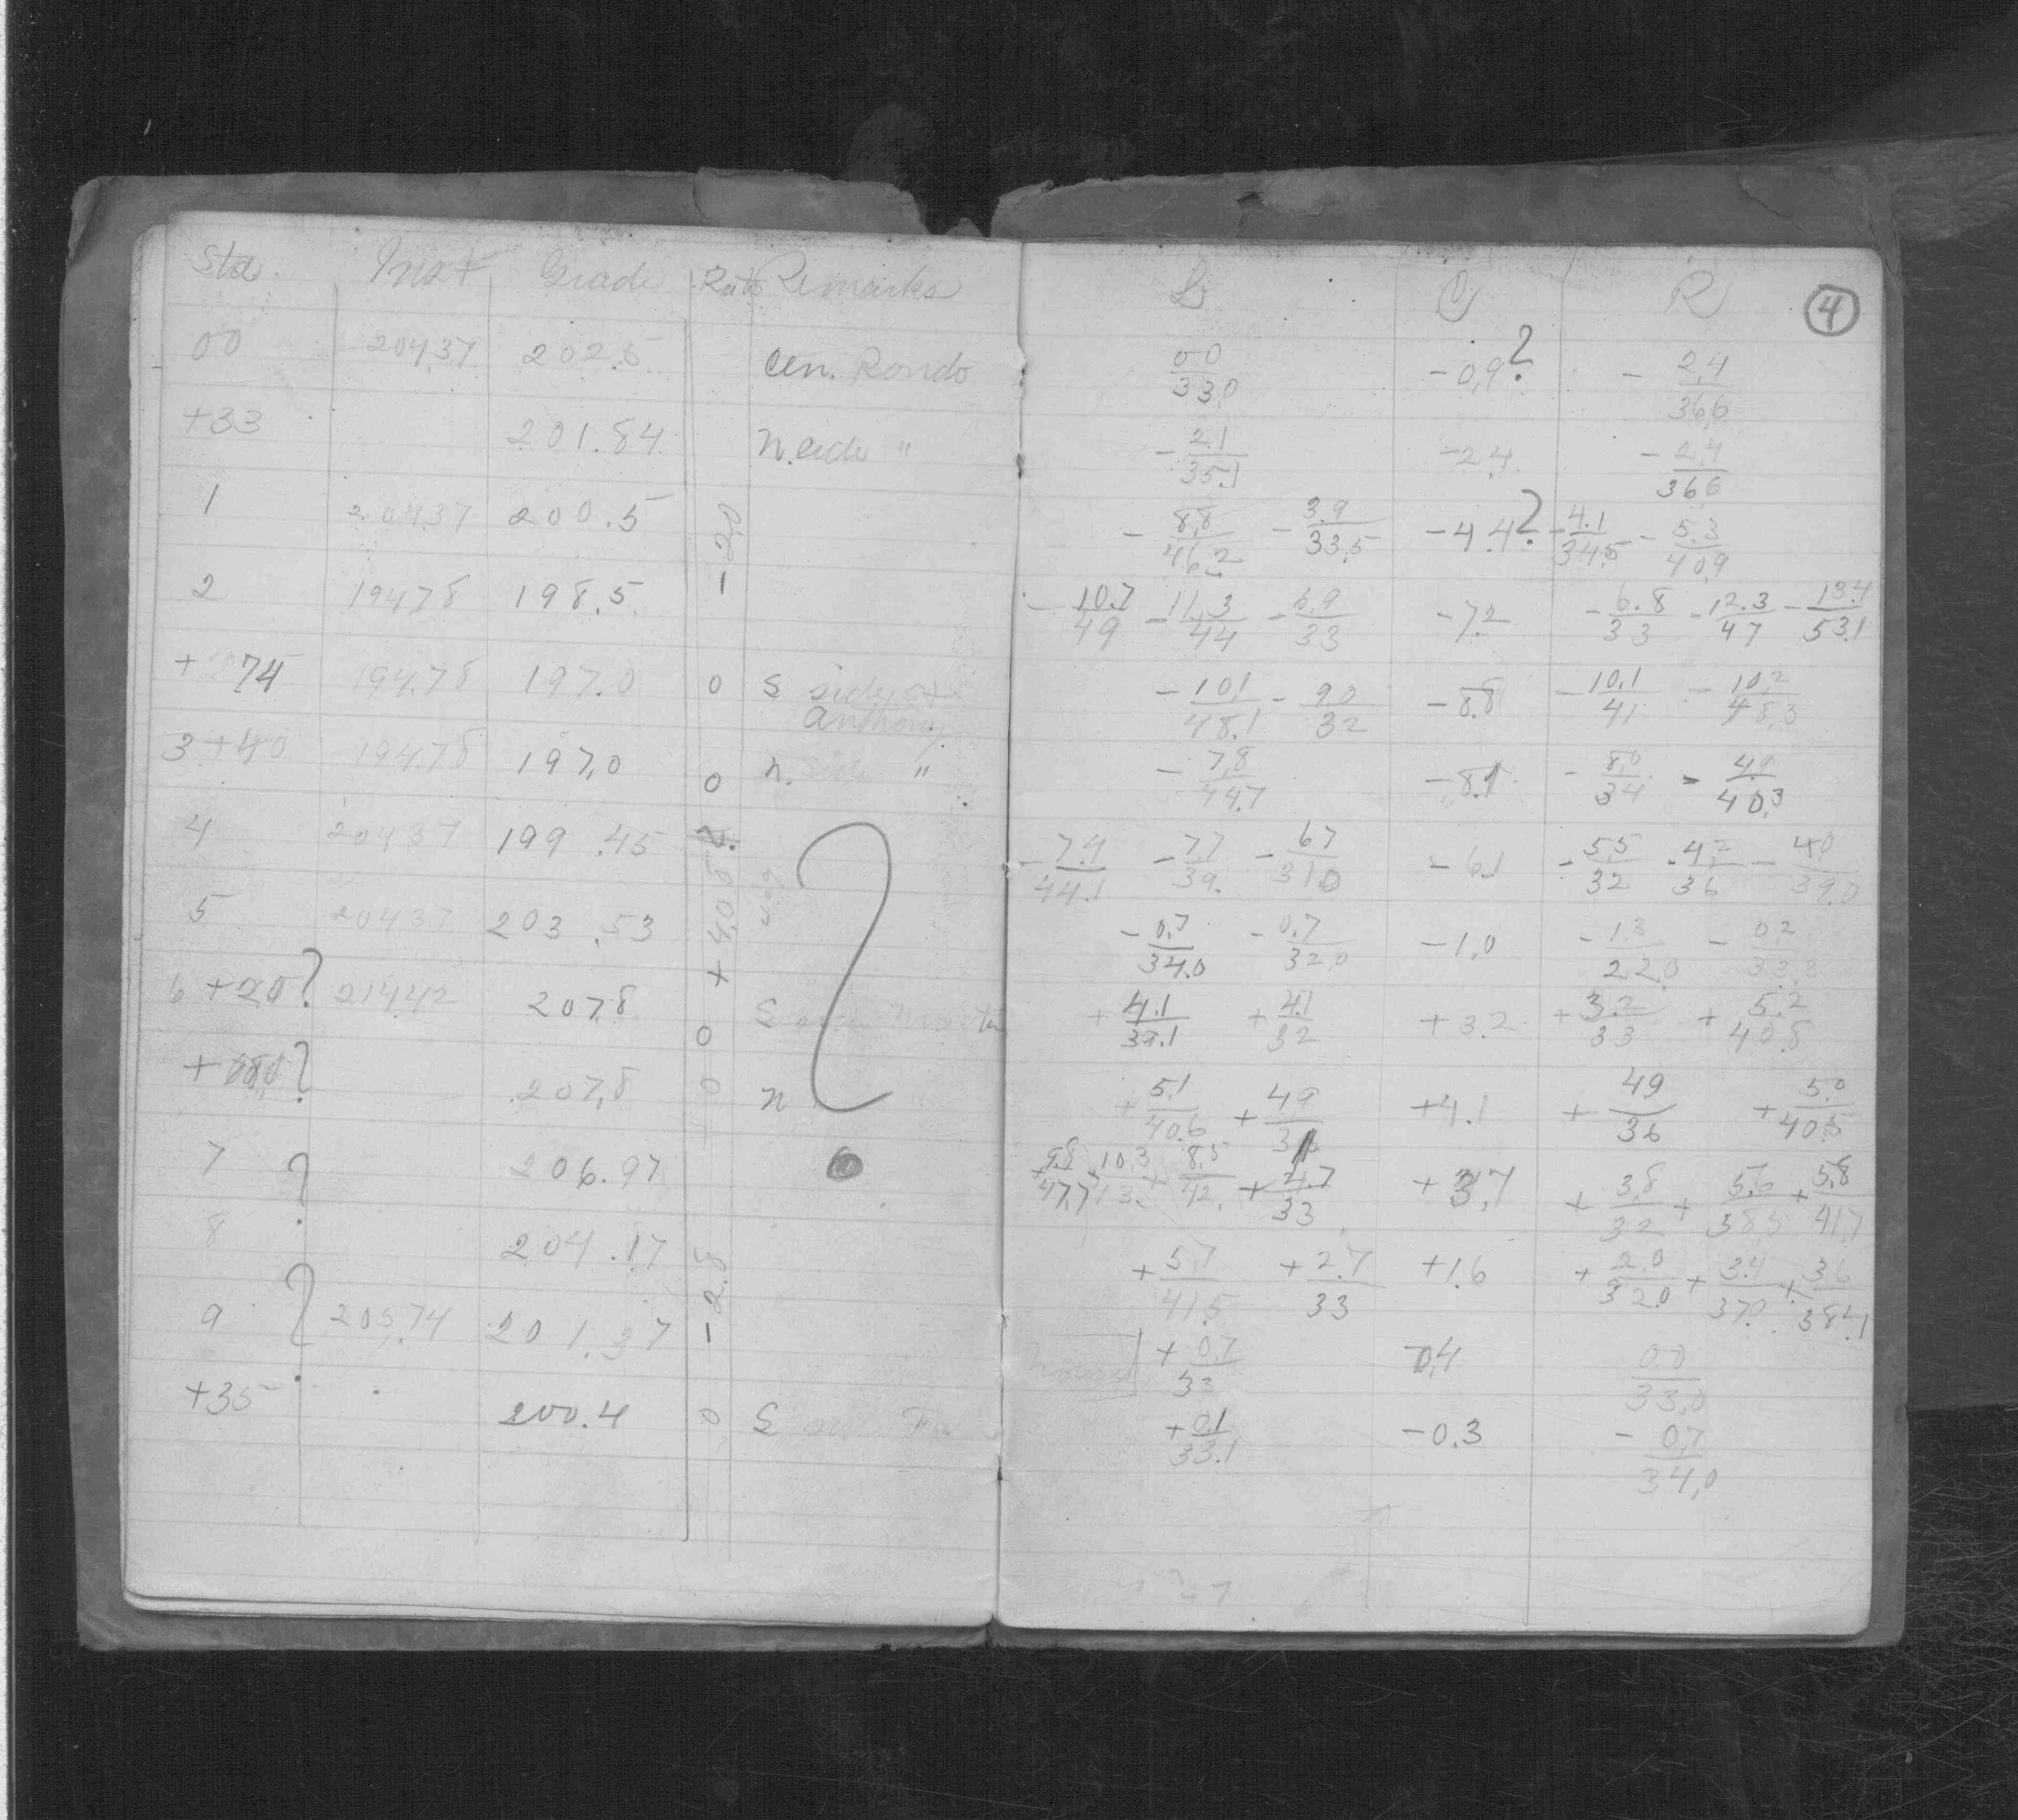 Sta. Inst Grade Rate Remarks L C R 4
00 204.37 202.5 Cen. Rondo 00/33.0 -0.9? -2.4/36.6
+33 201.84 N. side " -2.1/35.1 -2.4 -2.4/36.6
1 204.37 200.5 -8.8/46.2 -3.9/33.5 -4.4? -4.1/34.5 -5.3/40.9
-2.0
2 194.78 198.5 -10.7/49 -11.3/44 -6.9/33 -7.2 -6.8/33 -12.3/47 -13.4/53.1
+74 194.78 197.0 0 S side St -10.1/48.1 -9.0/32 -8.8 -10.1/41 -10.2/48.3
Anthony
3+40 194.78 197.0 0 N. side " -7.8/44.7 -8.1 -8.0/34 -4.9/40.3
4 204.37 199.45 ? -7.4/44.1 -7.7/39. -6.7/31.0 -6.1 -5.5/32 -4.2/36 -4.0/39.0
+4.08
5 204.37 203.53 -0.7/34.0 -0.7/32.0 -1.0 -1.3/22.0 -0.2/33.3
6+20? 214.42 207.8 0 S +4.1/39.1 +4.1/32 +3.2 +3.2/33 +5.2/40.8
+80? 207.8 0 N +5.1/40.6 +4.9/ +4.1 +4.9/36 +5.0/40.5
7 ? 206.97 +9.8/47.7 +10.3/ +8.5/42. +4.7/33 +3.7 +3.8/32 +5.6/38.5 +5.8/41.7
8 204.17 +5.7/41.5 +2.7/33 +1.6 +2.0/32.0 +3.4/37.0 +3.6/38.4
-2.8
9 ? 205.74 201.37 +0.7/33 0.4 0.0/33.0
+35 200.4 0 S +0.1/33.1 -0.3 -0.7/34.0